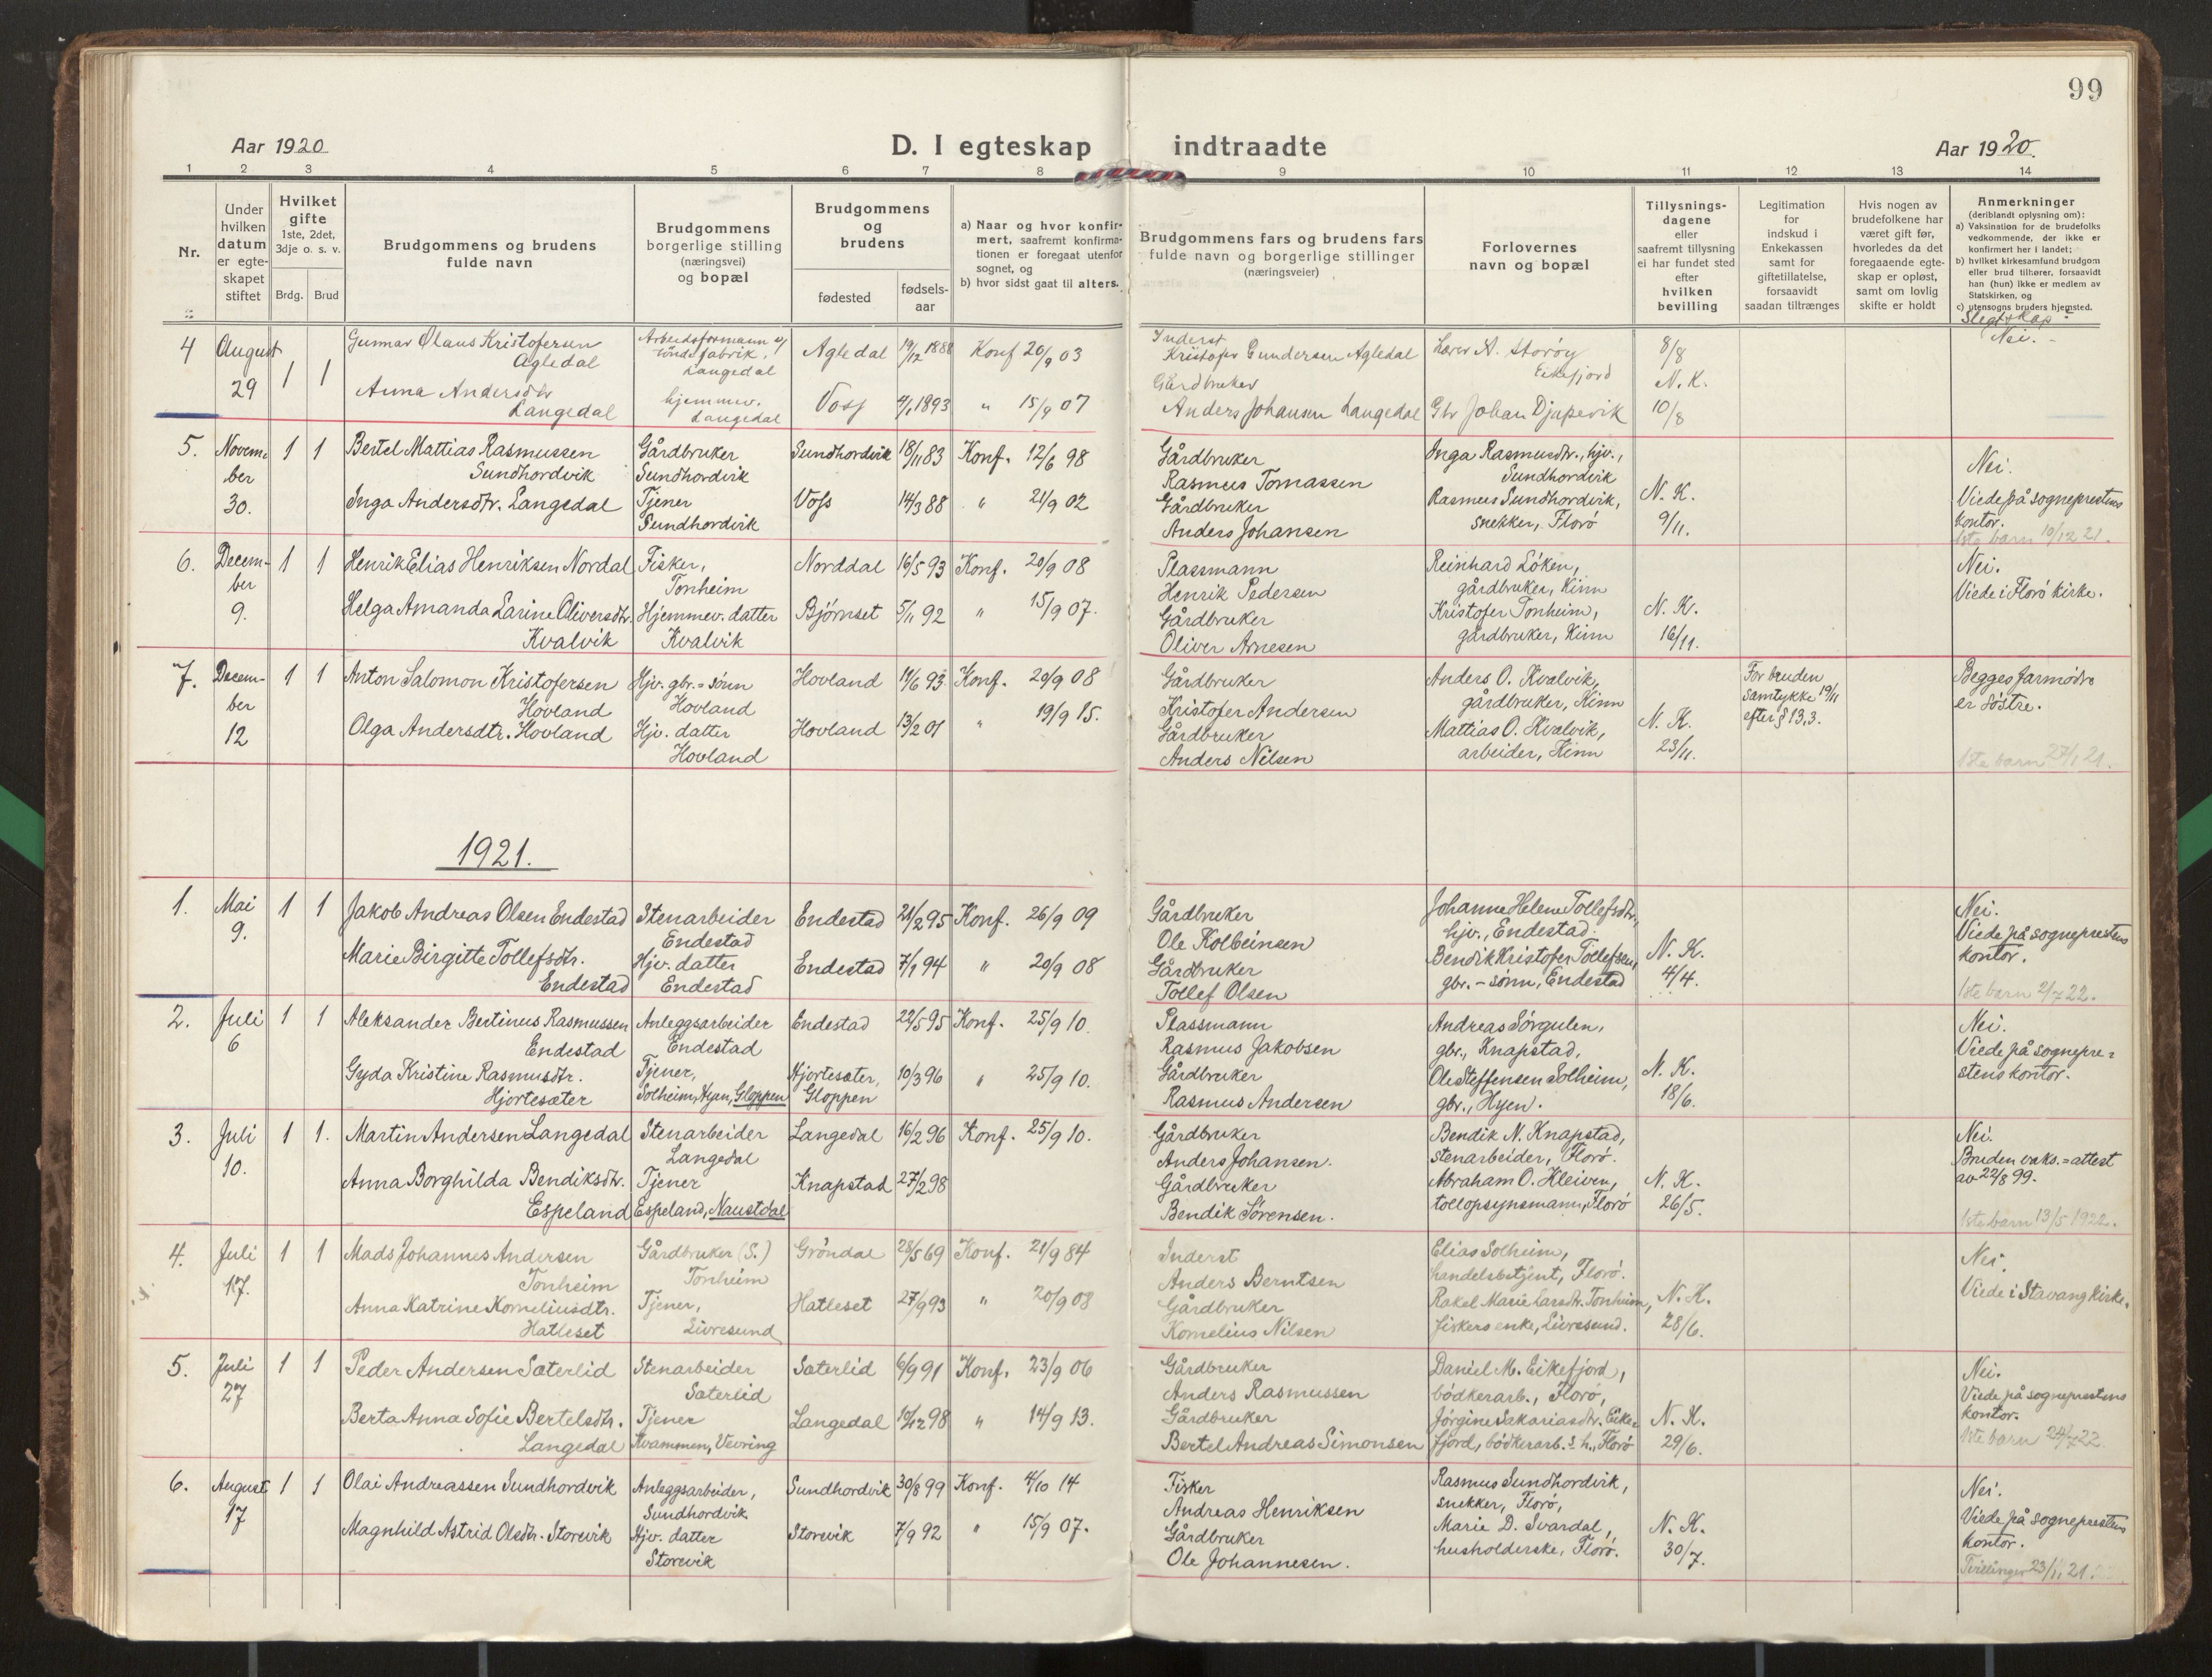 99
Aar 1920
D. I egteskap indtraadte
Aar 1920.
1 2 3 4 5 6 7 8 9 10 11 12 13 14
Nr.
Under
hvilken
datum
er egte-
skapet
stiftet
Hvilket
gifte
1ste, 2det,
3dje o. s. v.
Brdg. Brud
Brudgommens og brudens
fulde navn
Brudgommens
borgerlige stilling
(næringsvei)
og bopæl
Brudgommens
og
brudens
fødested
fødsels-
aar
a) Naar og hvor konfir-
mert, saafremt konfirma-
tionen er foregaat utenfor
sognet, og
b) hvor sidst gaat til alters.
Brudgommens fars og brudens fars
fulde navn og borgerlige stillinger
(næringsveier)
Forlovernes
navn og bopæl
Tillysnings-
dagene
eller
saafremt tillysning
ei har fundet sted
efter
hvilken
bevilling
Legitimation
for
indskud i
Enkekassen
samt for
giftetillatelse,
forsaavidt
saadan tiltrænges
Hvis nogen av
brudefolkene har
været gift før,
hvorledes da det
foregaaende egte-
skap er opløst,
samt om lovlig
skifte er holdt
Anmerkninger
(deriblandt oplysning om):
a) Vaksination for de brudefolks
vedkommende, der ikke er
konfirmert her i landet;
b) hvilket kirkesamfund brudgom
eller brud tilhører, forsaavidt
han (hun) ikke er medlem av
Statskirken, og
c) utensogns bruders hjemsted.
Slegtskap:
4
August
29
1 1
Gunnar Olaus Kristofersen
Agledal
Anna Andersdtr
Langedal
Arbeidsformann v/
tøndefabrik,
Langedal
hjemmev.
Langedal
Agledal 19/12 1888
Voss 4/1 1893
Konf 20/9 03
" 15/9 07
Inderst
Kristofer Gundersen Agledal
Gårdbruker
Anders Johansen Langedal
Lærer A. Storøy
Eikefjord
Gbr Johan Djupevik
8/8
N. K.
10/8
Nei.
5.
Novem-
ber
30.
1 1
Bertel Mattias Rasmussen
Sundhordvik
Inga Andersdtr. Langedal
Gårdbruker
Sundhordvik
Tjener
Sundhordvik
Sundhordvik 18/11 83
Voss 14/3 88
Konf. 12/6 98
" 21/9 02
Gårdbruker
Rasmus Tomassen
Gårdbruker
Anders Johansen
Inga Rasmusdtr., hjv.,
Sundhordvik
Rasmus Sundhordvik,
snekker, Florø
N. K.
9/11.
Nei.
Viede på sogneprestens
kontor.
1ste barn 19/12 21.
6.
Decem-
ber
9.
1 1
Henrik Elias Henriksen Nordal
Helga Amanda Larine Oliversdtr.
Kvalvik
Fisker,
Tonheim
Hjemmev. datter
Kvalvik
Norddal 16/5 93
Bjørnset 5/11 92
Konf. 20/9 08
" 15/9 07.
Plassmann
Henrik Pedersen
Gårdbruker
Oliver Arnesen
Reinhard Løken,
gårdbruker, Kinn
Kristofer Tonheim,
gårdbruker, Kinn
N. K.
16/11.
Nei.
Viede i Florø kirke.
7.
Decem-
ber
12
1 1
Anton Salomon Kristofersen
Hovland
Olga Andersdtr. Hovland
Hjv. gbr.-sønn
Hovland
Hjv. datter
Hovland
Hovland 19/6 93
Hovland 13/2 01
Konf. 20/9 08
" 19/9 15.
Gårdbruker
Kristofer Andersen
Gårdbruker
Anders Nilsen
Anders O. Kvalvik,
gårdbruker, Kinn
Mattias O. Kvalvik,
arbeider, Kinn
N. K.
23/11.
For bruden
samtykke 19/11
efter § 13,3.
Begges farmødre
er søstre.
1ste barn 27/1 21.
1921.
1.
Mai
9.
1 1
Jakob Andreas Olsen Endestad
Marie Birgitte Tollefsdtr.
Endestad
Stenarbeider
Endestad
Hjv. datter
Endestad
Endestad 21/2 95
Endestad 7/1 94
Konf. 26/9 09
" 20/9 08
Gårdbruker
Ole Kolbeinsen
Gårdbruker
Tollef Olsen
Johanne Helene Tollefsdtr.,
hjv., Endestad.
Bendik Kristofer Tollefsen,
gbr.-sønn, Endestad
N. K.
4/4.
Nei.
Viede på sogneprestens
kontor.
1ste barn 2/7 22.
2.
Juli
6
1 1
Aleksander Bertinus Rasmussen
Endestad
Gyda Kristine Rasmusdtr.
Hjortesæter
Anleggsarbeider
Endestad
Tjener,
Solheim, Hyen, Gloppen
Endestad 22/5 95
Hjortesæter, 10/3 96
Gloppen
Konf. 25/9 10.
" 25/9 10.
Plassmann
Rasmus Jakobsen
Gårdbruker
Rasmus Andersen
Andreas Sørgulen,
gbr., Knapstad,
Ole Steffensen Solheim,
gbr., Hyen.
N. K.
18/6.
Nei.
Viede på sognepre-
stens kontor.
3.
Juli
10.
1 1.
Martin Andersen Langedal
Anna Borghilda Bendiksdtr.
Espeland
Stenarbeider
Langedal
Tjener
Espeland, Naustdal
Langedal 16/2 96
Knapstad 27/2 98
Konf. 25/9 10.
Gårdbruker
Anders Johansen.
Gårdbruker
Bendik Sørensen.
Bendik N. Knapstad,
stenarbeider, Florø.
Abraham O. Kleiven,
tollopsynsmann, Florø
N. K.
26/5.
Nei.
Bruden vaks.=attest
av 22/8 99.
1ste barn 13/5 1922.
4.
Juli
17.
1 1
Mads Johannes Andersen
Tonheim
Anna Katrine Korneliusdtr.
Hatleset
Gårdbruker (S.)
Tonheim
Tjener,
Livresund
Grøndal 28/5 69
Hatleset 27/9 93
Konf. 21/9 84
" 20/9 08
Inderst
Anders Berntsen
Gårdbruker
Kornelius Nilsen
Elias Solheim,
handelsbetjent, Florø.
Rakel Marie Larsdtr. Tonheim,
fiskers enke, Livresund.
N. K.
28/6.
Nei.
Viede i Stavang kirke.
5.
Juli
27
1 1
Peder Andersen Sæterlid
Berta Anna Sofie Bertelsdtr.
Langedal
Stenarbeider
Sæterlid
Tjener
Kvammen, Vevring
Sæterlid 6/9 91
Langedal 19/12 98
Konf. 23/9 06
" 14/9 13.
Gårdbruker
Anders Rasmussen
Gårdbruker
Bertel Andreas Simonsen
Daniel M. Eikefjord,
bødkerarb., Florø,
Jørgine Sakariasdtr. Eike-
fjord, bødkerarb.s h., Florø
N. K.
29/6.
Nei.
Viede på sogneprestens
kontor.
1ste barn 24/7 22
6.
August
17
1 1
Olai Andreassen Sundhordvik
Magnhild Astrid Olsdtr. Storevik
Anleggsarbeider,
Sundhordvik
Hjv. datter
Storevik
Sundhordvik 30/8 99
Storevik 7/9 92
Konf. 4/10 14
" 15/9 07.
Fisker
Andreas Henriksen
Gårdbruker
Ole Johannesen.
Rasmus Sundhordvik,
snekker, Florø,
Marie D. Svardal,
husholderske, Florø.
N. K.
30/7.
Nei.
Viede på sogneprestens
kontor.
Tvillinger 23/11 21.